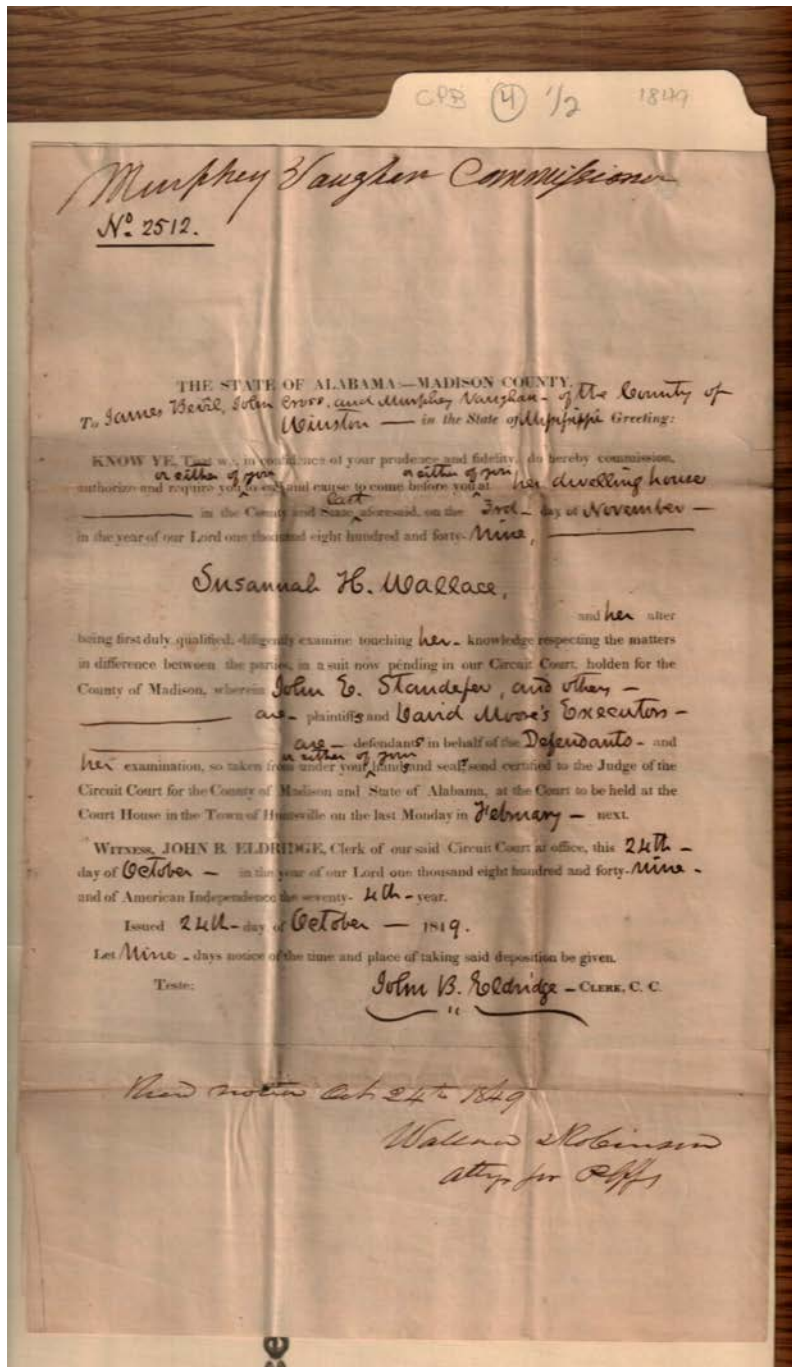 CPB 4 1/2 1849
Murphey Vaughan Commissioner
No. 2512.
THE STATE OF ALABAMA—MADISON COUNTY,
To James Bevil, John Cross, and Murphey Vaughan - of the County of
Winston — in the State of Mississippi Greeting:
KNOW YE, That we, in confidence of your prudence and fidelity, do hereby commission,
or either of you or either of you
authorize and require you to call and cause to come before you at her dwelling house
last
in the County and State aforesaid, on the 3rd - day of November —
in the year of our Lord one thousand eight hundred and forty- Nine,
Susannah H. Wallace,
and her after
being first duly qualified, diligently examine touching her - knowledge respecting the matters
in difference between the parties, in a suit now pending in our Circuit Court, holden for the
County of Madison, wherein John E. Standefer, and others -
are - plaintiffs and David Moore's Executors -
are - defendants in behalf of the Defendants - and
or either of you
her examination, so taken from under your hands and seals send certified to the Judge of the
Circuit Court for the County of Madison and State of Alabama, at the Court to be held at the
Court House in the Town of Huntsville on the last Monday in February — next.
WITNESS, JOHN B. ELDRIDGE, Clerk of our said Circuit Court at office, this 24th -
day of October - in the year of our Lord one thousand eight hundred and forty- nine -
and of American Independence the seventy- 4th - year.
Issued 24th - day of October — 1849.
Let Nine - days notice of the time and place of taking said deposition be given.
Teste: John B. Eldridge - CLERK, C. C.
notice Oct 24th 1849
Wallace & Robinson
attys for Plffs
se